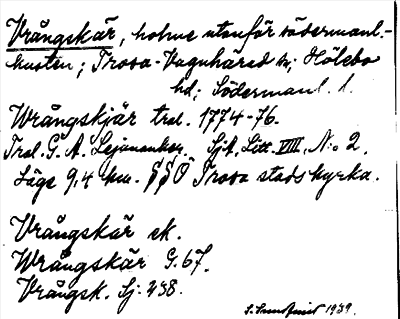 Vrångskär, holme utanför södermanl.-
kusten; Trosa-Vagnhärad sn; Hölebo
hd; Södermanl. l.
Wrångskjär trol. 1774-76.
Trol. G. A. Sjk. Litt. VIII, N:o 2.
Läge 9,4 km. SSO Trosa stads kyrka.
Vrångskär ek.
Wrångskär G. 67.
Vrångsk. Sj: 238.
S. Sundqvist 1939.